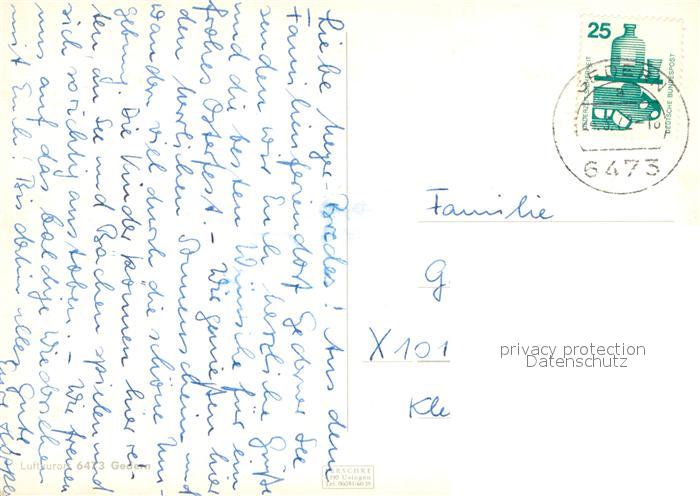 Liebe Meyer-Bredes! Aus dem
Familienferiendorf Gederner See
senden wir Euch herzliche Grüße
und die besten Wünsche für ein
frohes Osterfest. – Wir genießen hier
den herrlichen Sonnenschein und
wandern viel durch die schöne Um-
gebung. Die Kinder können hier rei-
ten, am See und Bächen spielen und
sich so richtig austoben. – Wir freuen
uns auf das baldige Wiedersehen
mit Euch! Bis dahin alles Gute
Eure
Luftkurort 6473 Gedern
25
DEUTSCHE BUNDESPOST
6473
Familie
G
X 101
Kle
privacy protection
Datenschutz